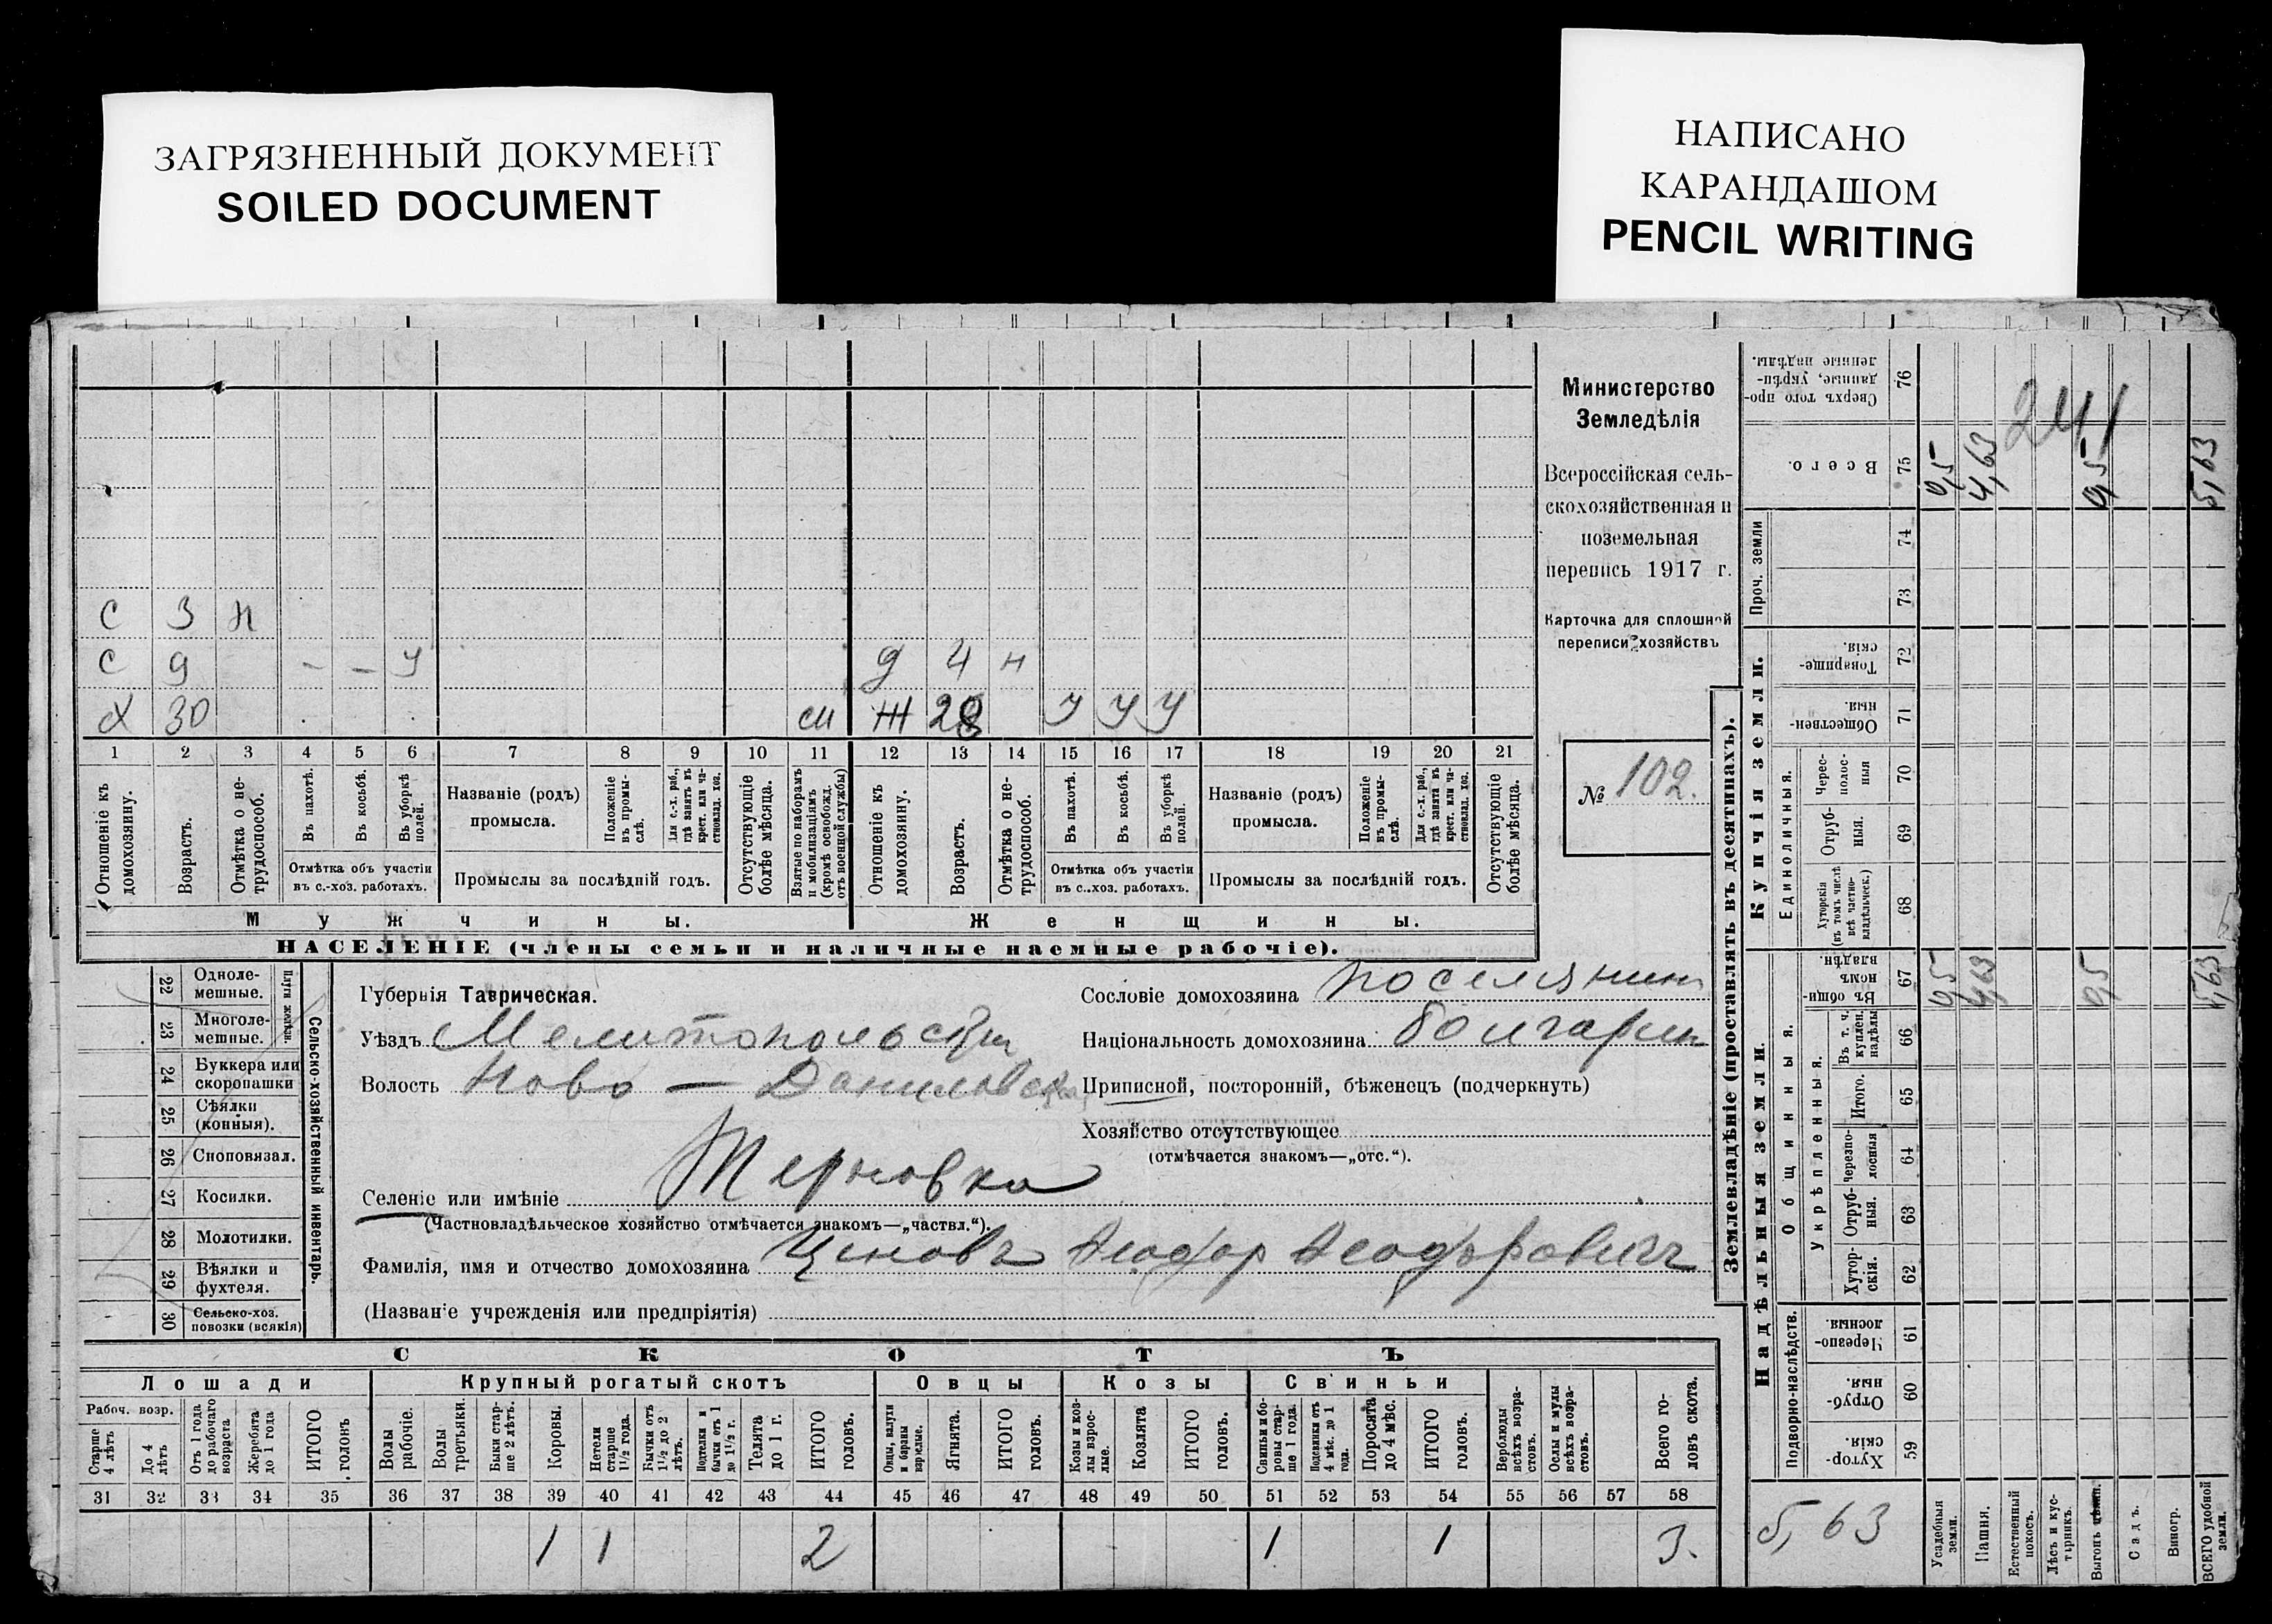 ЗАГРЯЗНЕННЫЙ ДОКУМЕНТ
SOILED DOCUMENT
НАПИСАНО
КАРАНДАШОМ
PENCIL WRITING
с 3 н
с 9 - - у д 4 н
х 30 ж 28 у у у
1 2 3 4 5 6 7 8 9 10 11 12 13 14 15 16 17 18 19 20 21
Отношеніе къ домохозяину.
Возрастъ.
Отмѣтка о не-трудоспособ.
Въ пахотѣ.
Въ косьбѣ.
Въ уборкѣ полей.
Отмѣтка объ участіи
въ с.-хоз. работахъ.
Названіе (родъ)
промысла.
Положеніе въ промы-слѣ.
Для с.-х. раб., гдѣ занятъ въ крест. или ча-стновлад. хоз.
Промыслы за послѣдній годъ.
Отсутствующіе болѣе мѣсяца.
Взятые по наборамъ и мобилизаціямъ (кромѣ освобожд. отъ военной службы)
Отношеніе къ домохозяину.
Возрастъ.
Отмѣтка о не-трудоспособ.
Въ пахотѣ.
Въ косьбѣ.
Въ уборкѣ полей.
Отмѣтка объ участіи
въ с.-хоз. работахъ.
Названіе (родъ)
промысла.
Положеніе въ промы-слѣ.
Для с.-х. раб., гдѣ занята въ крест. или ча-стновлад. хоз.
Промыслы за послѣдній годъ.
Отсутствующіе болѣе мѣсяца.
Мужчины. Женщины.
НАСЕЛЕНІЕ (члены семьи и наличные наемные рабочіе).
Министерство
Земледѣлія
Всероссійская сель-
скохозяйственная и
поземельная
перепись 1917 г.
Карточка для сплошной
переписи хозяйствъ
№ 102.
22 Одноле-мешные.
23 Многоле-мешные.
Плуги желѣзн.
24 Буккера или скоропашки
25 Сѣялки (конныя).
26 Сноповязал.
27 Косилки.
28 Молотилки.
29 Вѣялки и фухтеля.
30 Сельско-хоз. повозки (всякія)
Сельско-хозяйственный инвентарь.
Губернія Таврическая.
Уѣздъ Мелитопольскій
Волость Ново-Даниловская
Сословіе домохозяина поселянин
Національность домохозяина болгарин
Приписной, посторонній, бѣженецъ (подчеркнуть)
Хозяйство отсутствующее
(отмѣчается знакомъ—„отс.“).
Селеніе или имѣніе Терновка
(Частновладѣльческое хозяйство отмѣчается знакомъ—„частвл.“).
Фамилія, имя и отчество домохозяина Ценовъ Феодор Феодоровичъ
(Названіе учрежденія или предпріятія)
СКОТЪ
Лошади Крупный рогатый скотъ Овцы Козы Свиньи
Рабоч. возр.
Старше 4 лѣтъ
До 4 лѣтъ
Отъ 1 года до рабочаго возраста
Жеребята до 1 года
ИТОГО головъ
Волы рабочіе.
Волы третьяки.
Быки стар-ше 2 лѣтъ.
Коровы.
Нетели старше 1½ года.
Бычки отъ 1½ до 2 лѣтъ.
Подтелки и бычки отъ 1 до 1½ г.
Телята до 1 г.
ИТОГО головъ.
Овцы, валухи и бараны взрослые.
Ягнята.
ИТОГО головъ.
Козы и коз-лы взрос-лые.
Козлята
ИТОГО головъ.
Свиньи и бо-ровы стар-ше 1 года.
Подсвинки отъ 4 мѣс. до 1 года.
Поросята до 4 мѣс.
ИТОГО головъ.
Верблюды всѣхъ возра-стовъ.
Ослы и мулы всѣхъ возра-стовъ.
Всего го-ловъ скота.
31 32 33 34 35 36 37 38 39 40 41 42 43 44 45 46 47 48 49 50 51 52 53 54 55 56 57 58
1 1 2 1 1 3.
Землевладѣніе (проставлять въ десятинахъ).
Сверхъ того про-данные, укрѣп-ленные надѣлы. 76
Всего. 75 0,5 4,63 0,5 5,63
241
Проч. земли 74 73
Купчія земли.
Товарище-скія. 72
Обществен-ныя. 71
Единоличныя.
Черес-полос-ныя 70
Отруб-ныя. 69
Хуторскія (въ томъ числѣ всѣ частно-владѣльческ.) 68
Надѣльныя земли.
Общинныя.
Въ общин-номъ владѣн. 67 0,5 4,63 0,5 5,63
Укрѣпленныя.
Въ т. ч. куплен. надѣлы 66
Итого. 65
Черезпо-лосныя 64
Отруб-ныя. 63
Хутор-скія. 62
Подворно-наслѣдств.
Черезпо-лосныя. 61
Отруб-ныя. 60
Хутор-скія. 59
5,63
Усадебныя земли.
Пашня.
Естественный покосъ.
Лѣсъ и кус-тарникъ.
Выгонъ
Садъ.
Виногр.
ВСЕГО удобной земли.